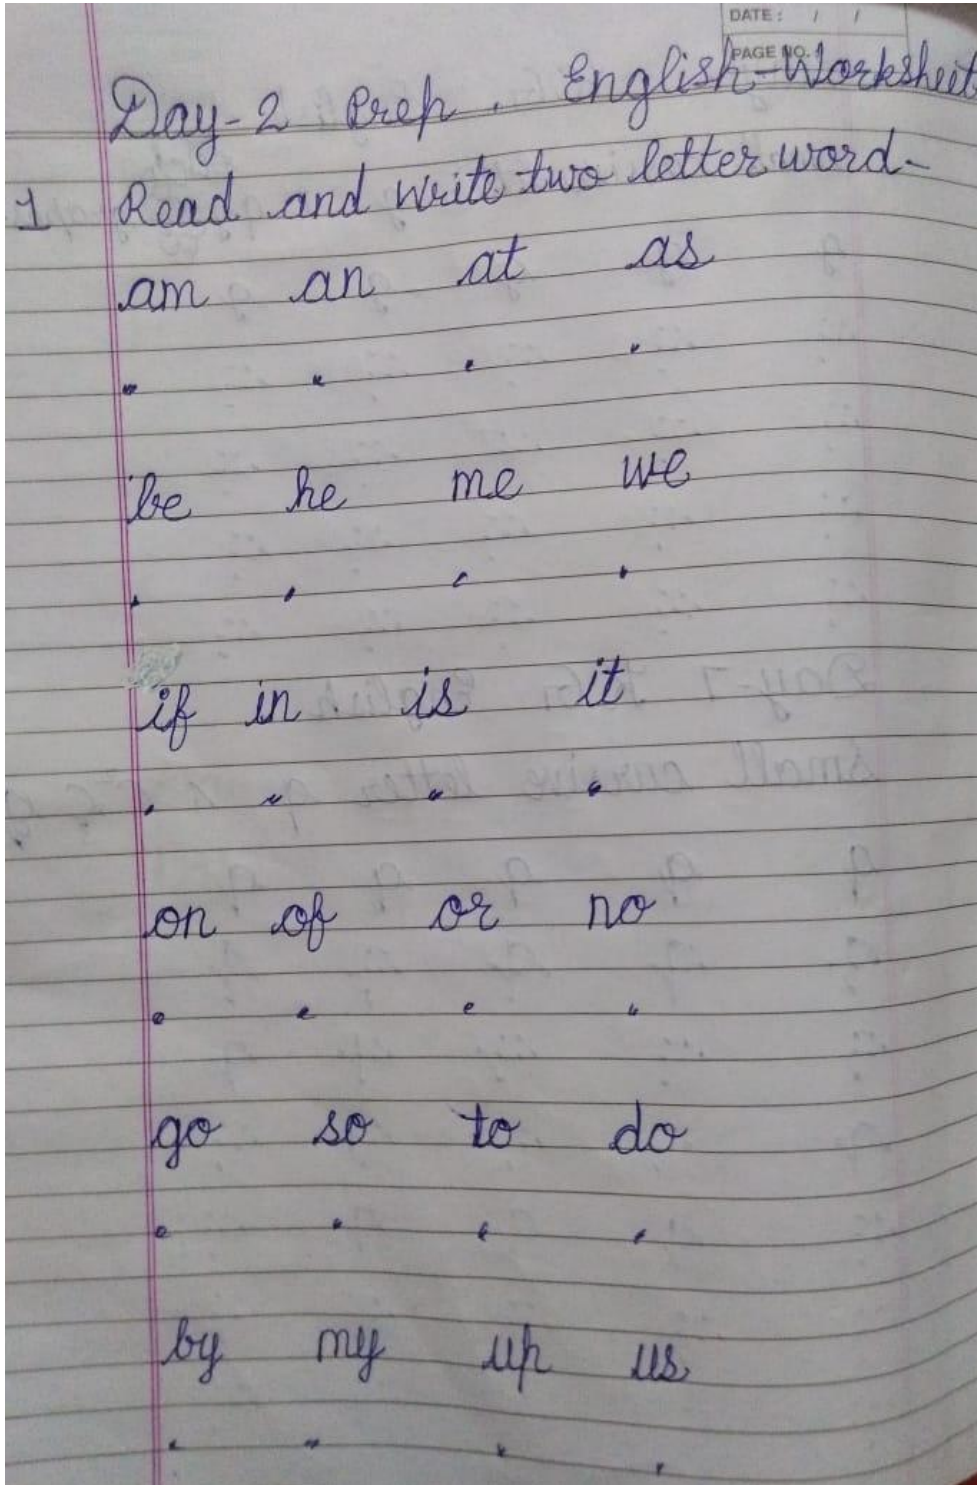 DATE: / /
PAGE NO.
Day-2 Prep. English-Worksheet
1 Read and write two letter word-
am an at as
be he me we
if in is it
on of or no
go so to do
by my up us